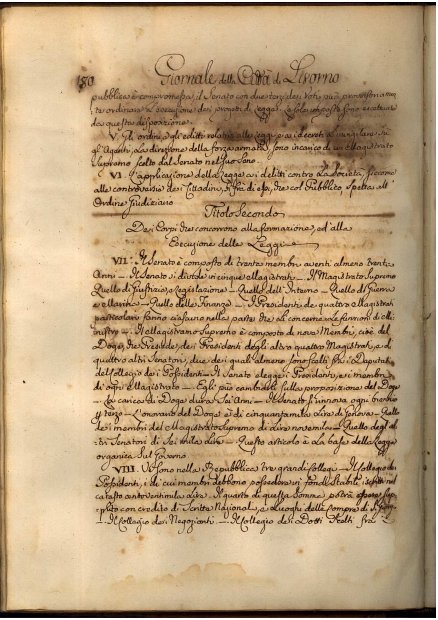 150 Giornale della Città di Livorno
pubblica è compromessa, il Senato con due terzi dei Voti può provvisoriamen
te ordinare l'esecuzione dei progetti di Legge. Le sole imposte sono eccettuate
da questa disposizione.
V. Gli ordini, gli editti relativi alle Leggi e ai decreti, a vingilare su
gl'Agenti, la direzione della forza armata, sono incarico di un Magistrato
Supremo scelto dal Senato nel suo seno.
VI. L'applicazione della Legge a i delitti contro la Società, siccome
alle controversie dei Cittadini, o fra di essi, o che col Pubblico, spetta all'
Ordine Giudiziario
Titolo Secondo
Dei Corpi che concorrono alla formazione, ed alla
Esecuzione delle Leggi
VII. Il Senato è composto di trenta membri aventi almeno trenta
Anni — Il Senato si divide in cinque Magistrati — Il Magistrato Supremo
Quello di Giustizia, e Legislazione — Quello dell'Interno — Quello di Guerra
e Marina — Quello delle Finanze. — I Presidenti de quattro Magistrati
particolari fanno ciascuno nella parte che li concerne le funzioni di Mi
nistro — Il Magistrato Supremo è composto di nove Membri, cioè del
Doge, che Presiede, dei Presidenti degli altri quattro Magistrati, e di
quattro altri Senatori, due dei quali almeno sono scelti fra i Deputati
del Collegio dei Possidenti — Il Senato elegge i Presidenti, e i membri
di ogni Magistrato — Egli può cambiarli sulla proposizione del Doge
— La carica di Doge dura Sei Anni — Il Senato si rinnova ogni biennio
per terzo — L'onorario del Doge è di cinquantamila Lire di Genova — Quello
dei membri del Magistrato Supremo di Lire novemila — Quello degl'al
tri Senatori di Sei mila Lire — Questo articolo è la base della Legge
organica sul Governo
VIII. Vi sono nella Repubblica tre grandi Collegi — Il Collegio dei
Possidenti, i di cui membri debbono possedere in fondi stabili iscritti nel
catasto centoventimila Lire. Il quarto di questa somma potrà essere sup
plito con credito di Scritta Nazional, e Luoghi delle Compre di S. Giorg.
— Il Collegio dei Negozianti — Il Collegio dei Dotti scelti fra i